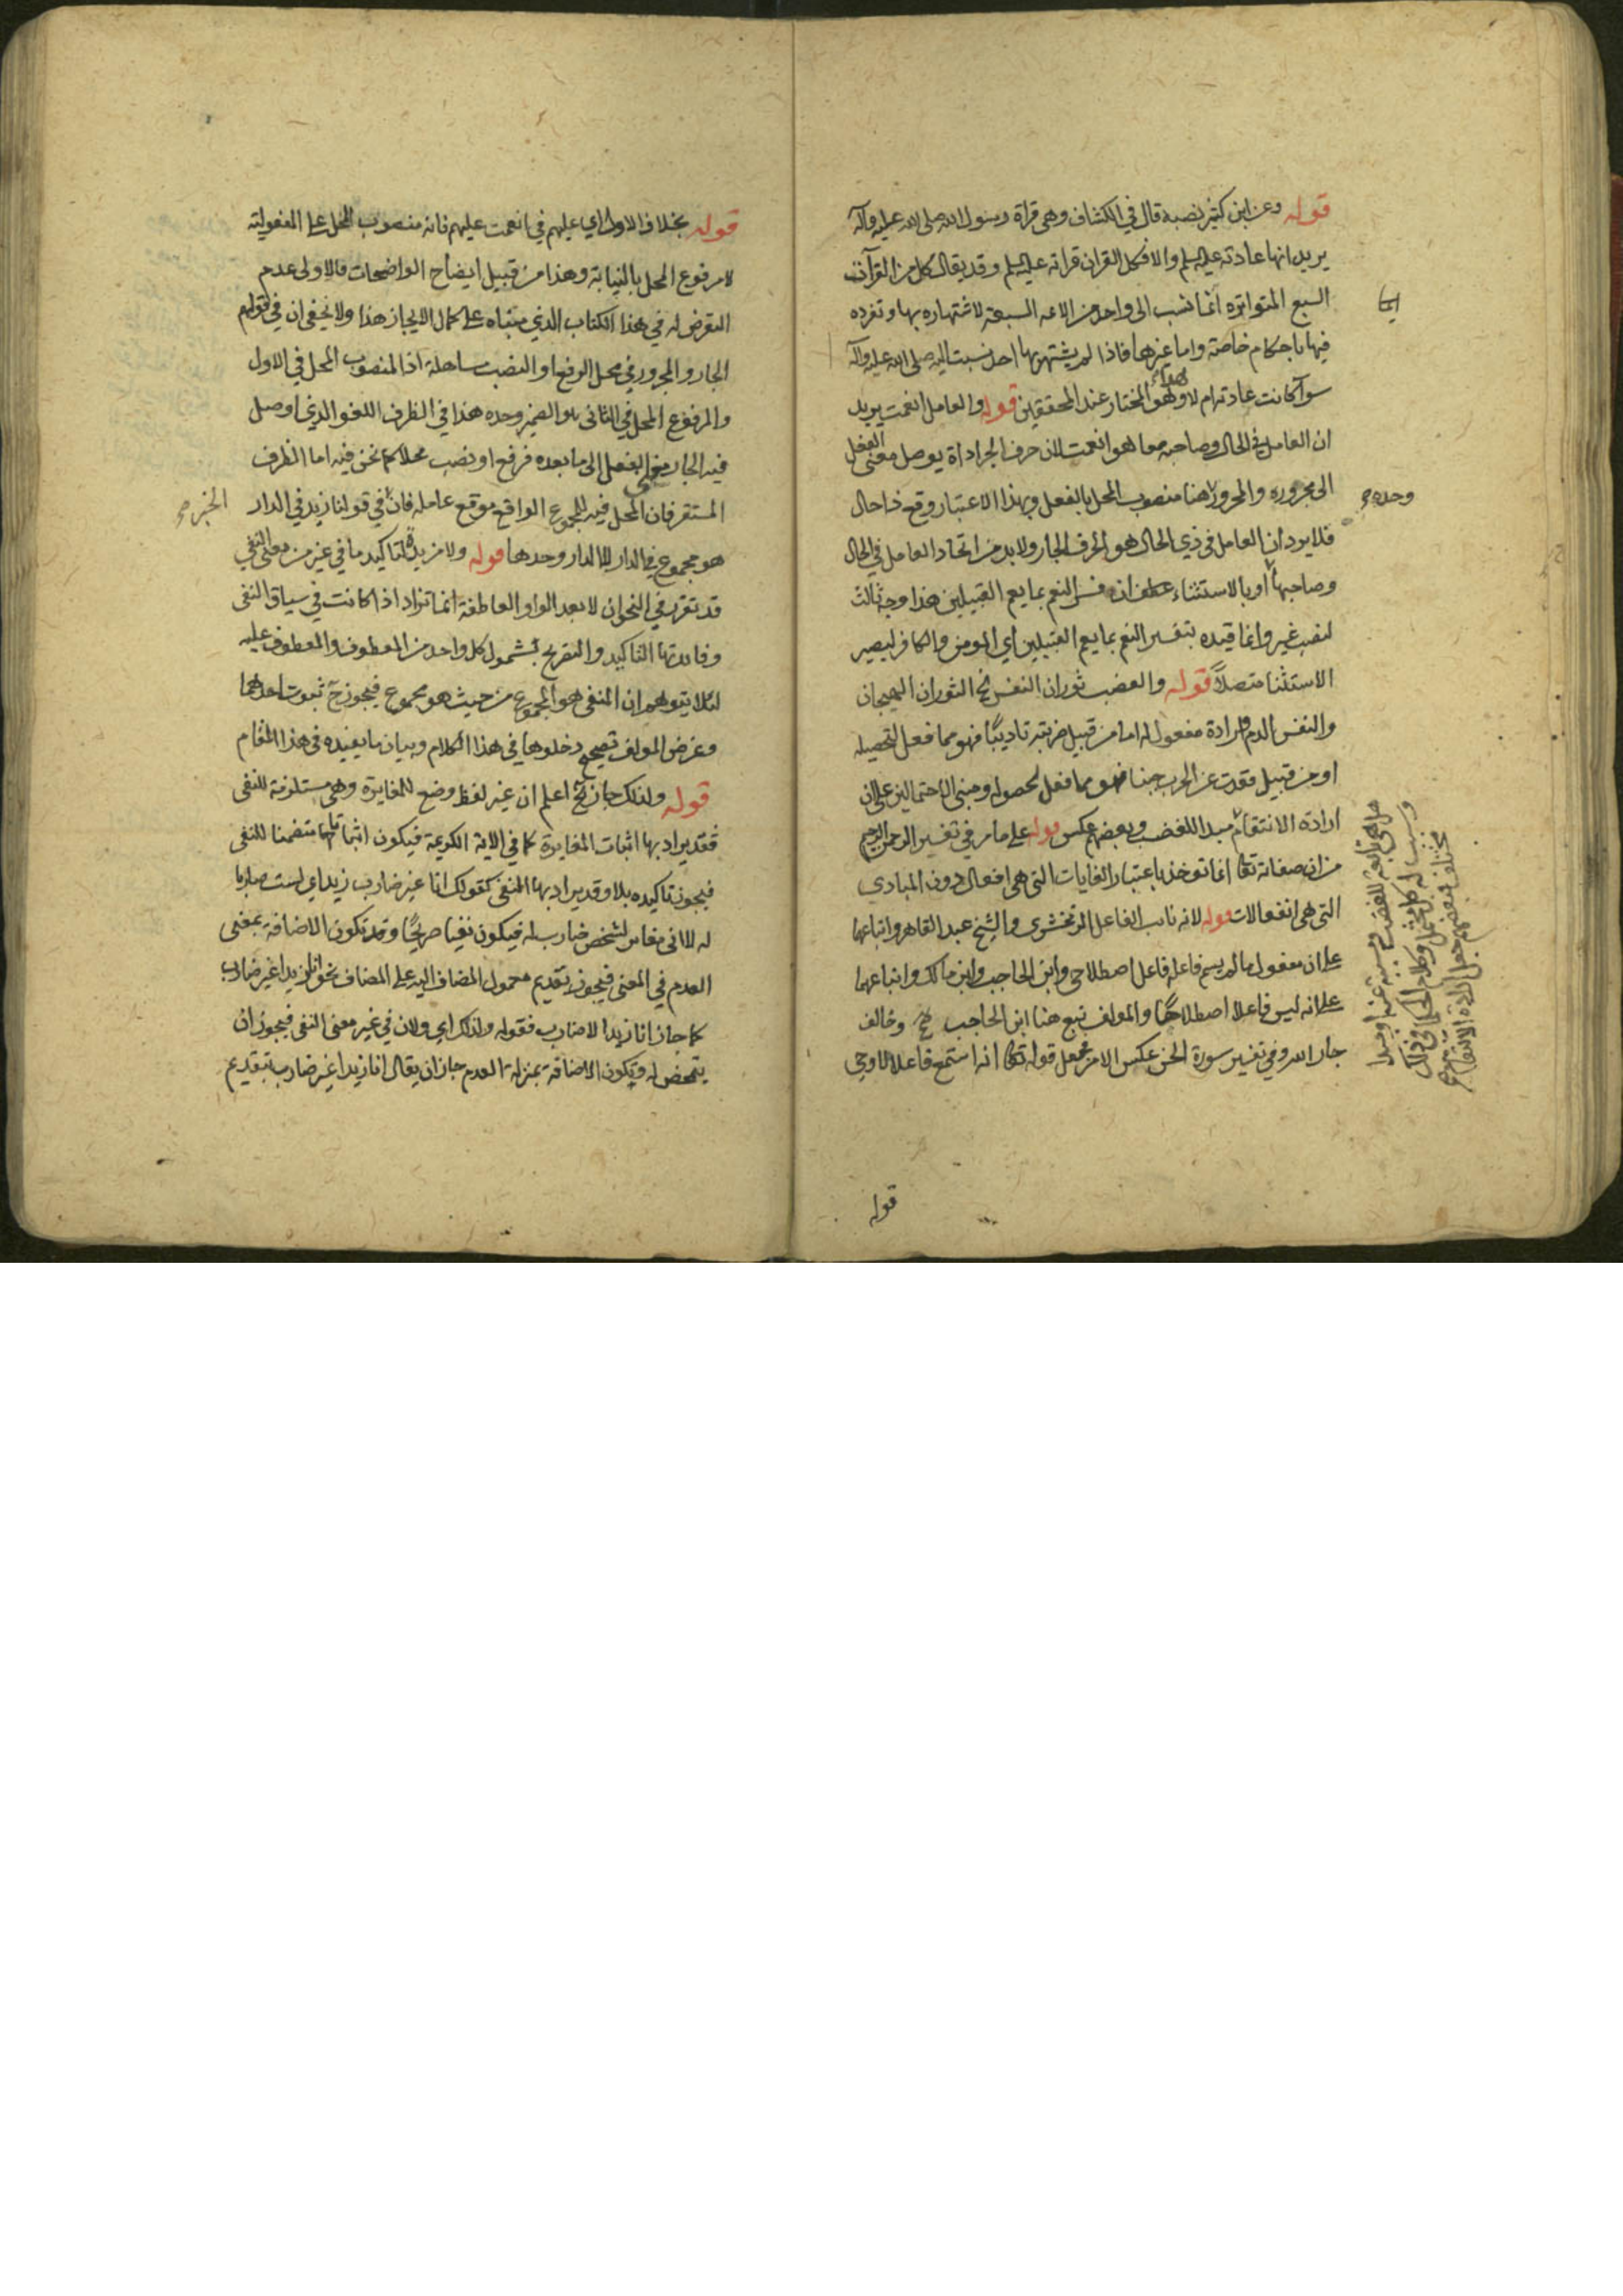 قوله وعن ابن كثير نصبه قال في الكشاف وهى قراة رسول الله صلى الله عليه وآله
يريد انها عادته عليه السلم والا فكل القران قراته عليه السلم وقد يقال كل من القرآات
السبع المتواتره انما نسب الى واحد من الائمه السبعة لاشتهاره بها وتفرده
فيها باحكام خاصة واما غيرها فاذا لم يشتهر بها احد نسبت اليه صلى الله عليه وآله
سوآ كانت عادته ام لا وهو المختار عند المحققين قوله والعامل انعمت يريد
ان العامل في الحال وصاحبه معا هو انعمت لان حرف الجر اداة يوصل معنى الفعل
الى مجروره والمجرور هنا منصوب المحل بالفعل وبهذا الاعتبار وقع ذا حال
فلا يرد ان العامل في ذي الحال هو الحرف الجار ولا بد من اتحاد العامل في الحال
وصاحبها او بالاستثناء عطف ان فسر النعم بما يعم القبيلين هذا وجه ثالث
لنصب غير وانما قيده بتفسير النعم بما يعم القبيلين اي المومن والكافر ليصير
الاستثنا متصلاً قوله والغضب ثوران النفس الخ الثوران الهيجان
والنفس الدم وارادة مفعول له اما من قبيل ضربته تاديبًا فهو مما فعل لتحصيله
او من قبيل قعدت عن الحرب جبنا فهو مما فعل لحصوله ومبنى الاحتمالين على ان
ارادة الانتقام مبدا للغضب وبعضهم عكس قوله على ما مر في تفسير الرحمن الرحيم
من ان صفاته تعالى انما توخذ باعتبار الغايات التى هى افعال دون المبادي
التى هى انفعالات قوله لانه نائب الفاعل الزمخشرى والشيخ عبد القاهر واتباعهما
على ان مفعول ما لم يسم فاعله فاعل اصطلاحى وابن الحاجب وابن مالك واتباعهما
على انه ليس فاعلا اصطلاحًا والمولف تبع هنا ابن الحاجب وخالف
جار الله وفي تفسير سورة الجن عكس الامر فجعل قوله تعالى انه استمع فاعلا لاوحى
قوله
وحده صح
قوله بخلاف الاول اي عليهم في انعمت عليهم فانه منصوب المحل على المفعولية
لا مرفوع المحل بالنيابة وهذا من قبيل ايضاح الواضحات فالاولى عدم
التعرض له في هذا الكتاب الذي مبناه على كمال الايجاز هذا ولا يخفى ان في قولهم
الجار والمجرور في محل الرفع او النصب مساهلة اذ المنصوب المحل في الاول
والمرفوع المحل في الثانى هو الضمير وحده هذا في الظرف اللغو الذي اوصل
فيه الجار معنى الفعل الى ما بعده فرفع او نصب محلا كما نحن فيه اما الظرف
المستقر فان المحل فيه للمجموع الواقع موقع عامله فان في قولنا زيد في الدار
الخبر صح
هو مجموع في الدار لا الدار وحدها قوله ولا مزيدة لتاكيد ما في غير من معنى النفي
قد تقرر في النحو ان لا بعد الواو العاطفة انما تزاد اذا كانت في سياق النفى
وفائدتها التاكيد والتصريح بشمول كل واحد من المعطوف والمعطوف عليه
لئلا يتوهم ان المنفى هو المجموع من حيث هو مجموع فيجوز ح ثبوت احدهما
وغرض المولف تصحيح دخولها في هذا الكلام وبيان ما يفيده فى هذا المقام
قوله ولذلك جاز الخ اعلم ان غير لفظ وضع للمغايرة وهى مستلزمة للنفى
فقد يراد بها اثبات المغايرة كما في الاية الكريمة فيكون اثباتها متضمنا للنفى
فيجوز تاكيده بلا وقد يراد بها النفى كقولك انا غير ضارب زيد اي لست ضاربا
له لا انى مغاير لشخص ضارب له فيكون نفيا صريحًا وقد تكون الاضافة بمعنى
العدم في المعنى فيجوز تقديم معمول المضاف اليه على المضاف نحو انا زيدا غير ضارب
كما جاز انا زيدا لا ضارب فقوله ولذلك اي ولان في غير معنى النفى فيجوز ان
يتمحض له وتكون الاضافة بمنزلة العدم جاز ان يقال انا زيدا غير ضارب بتقديم